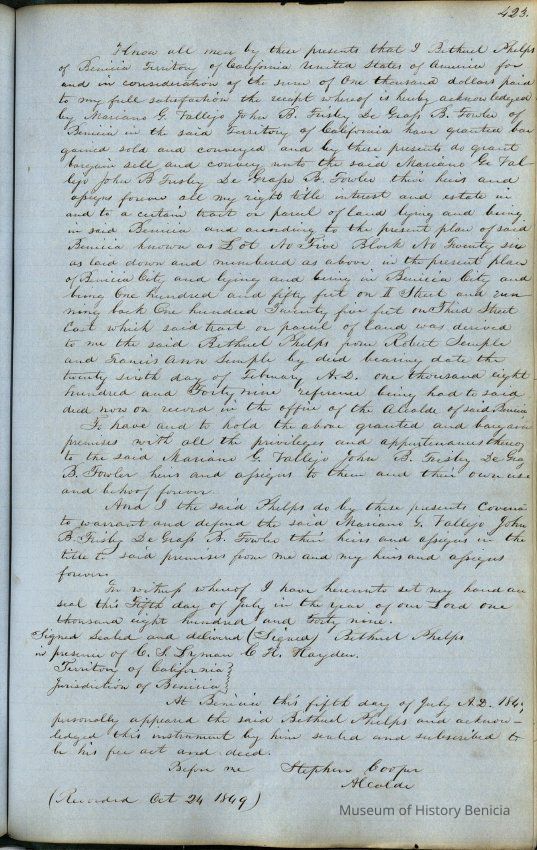 423.
Know all men by these presents that I Bethuel Phelps
of Benicia Territory of California United States of America for
and in consideration of the sum of One thousand dollars paid
to my full satisfaction the recept whereof is hereby acknowledged
by Mariano G. Vallejo John B. Frisby De Grass B. Fowler of
Benicia in the said Territory of California have granted bar
gained sold and conveyed and by these presents do grant
bargain sell and convey unto the said Mariano G. Val-
lejo John B Frisby De Grass B. Fowler their heirs and
assigns forever all my right title interest and estate in
and to a certain tract or parcel of land lying and being
in said Benicia and according to the present plan of said
Benicia known as Lot No Five Block No Twenty six
as laid down and numbered as above in the present plan
of Benicia City and lying and being in Benicia City and
being One hundred and fifty feet on II Street and run
ning back One hundred Twenty five feet on Third Street
East which said tract or parcel of land was derived
to me the said Bethuel Phelps from Robert Semple
and Francis Ann Semple by deed bearing date the
twenty sixth day of February A.D. one thousand eight
hundred and Forty nine reference being had to said
deed now on record in the office of the Alcalde of said Benicia
To have and to hold the above granted and bargain
premises with all the privileges and appurtenances thereof
to the said Mariano G. Vallejo John B. Frisby De Gras
B. Fowler heirs and assigns to them and their own use
and behoof forever
And I the said Phelps do by these presents Covena
to warrant and defend the said Mariano G. Vallejo John
B. Frisby De Grass B. Fowler their heirs and assigns in the
title to said premises from me and my heirs and assigns
forever.
In witness whereof I have hereunto set my hand an
seal this Fifth day of July in the year of our Lord one
thousand eight hundred and Forty nine.
Signed sealed and delivered (Signed) Bethuel Phelps
in presence of C. S. Lyman C H. Hayden.
Territory of California }
Jurisdiction of Benicia }
At Benicia this fifth day of July A.D. 184
personally appeared the said Bethuel Phelps and acknow-
ledged this instrument by him sealed and subscribed to
be his free act and deed.
Before me Stephen Cooper
Alcalde
(Recorded Oct 24 1849)
Museum of History Benicia